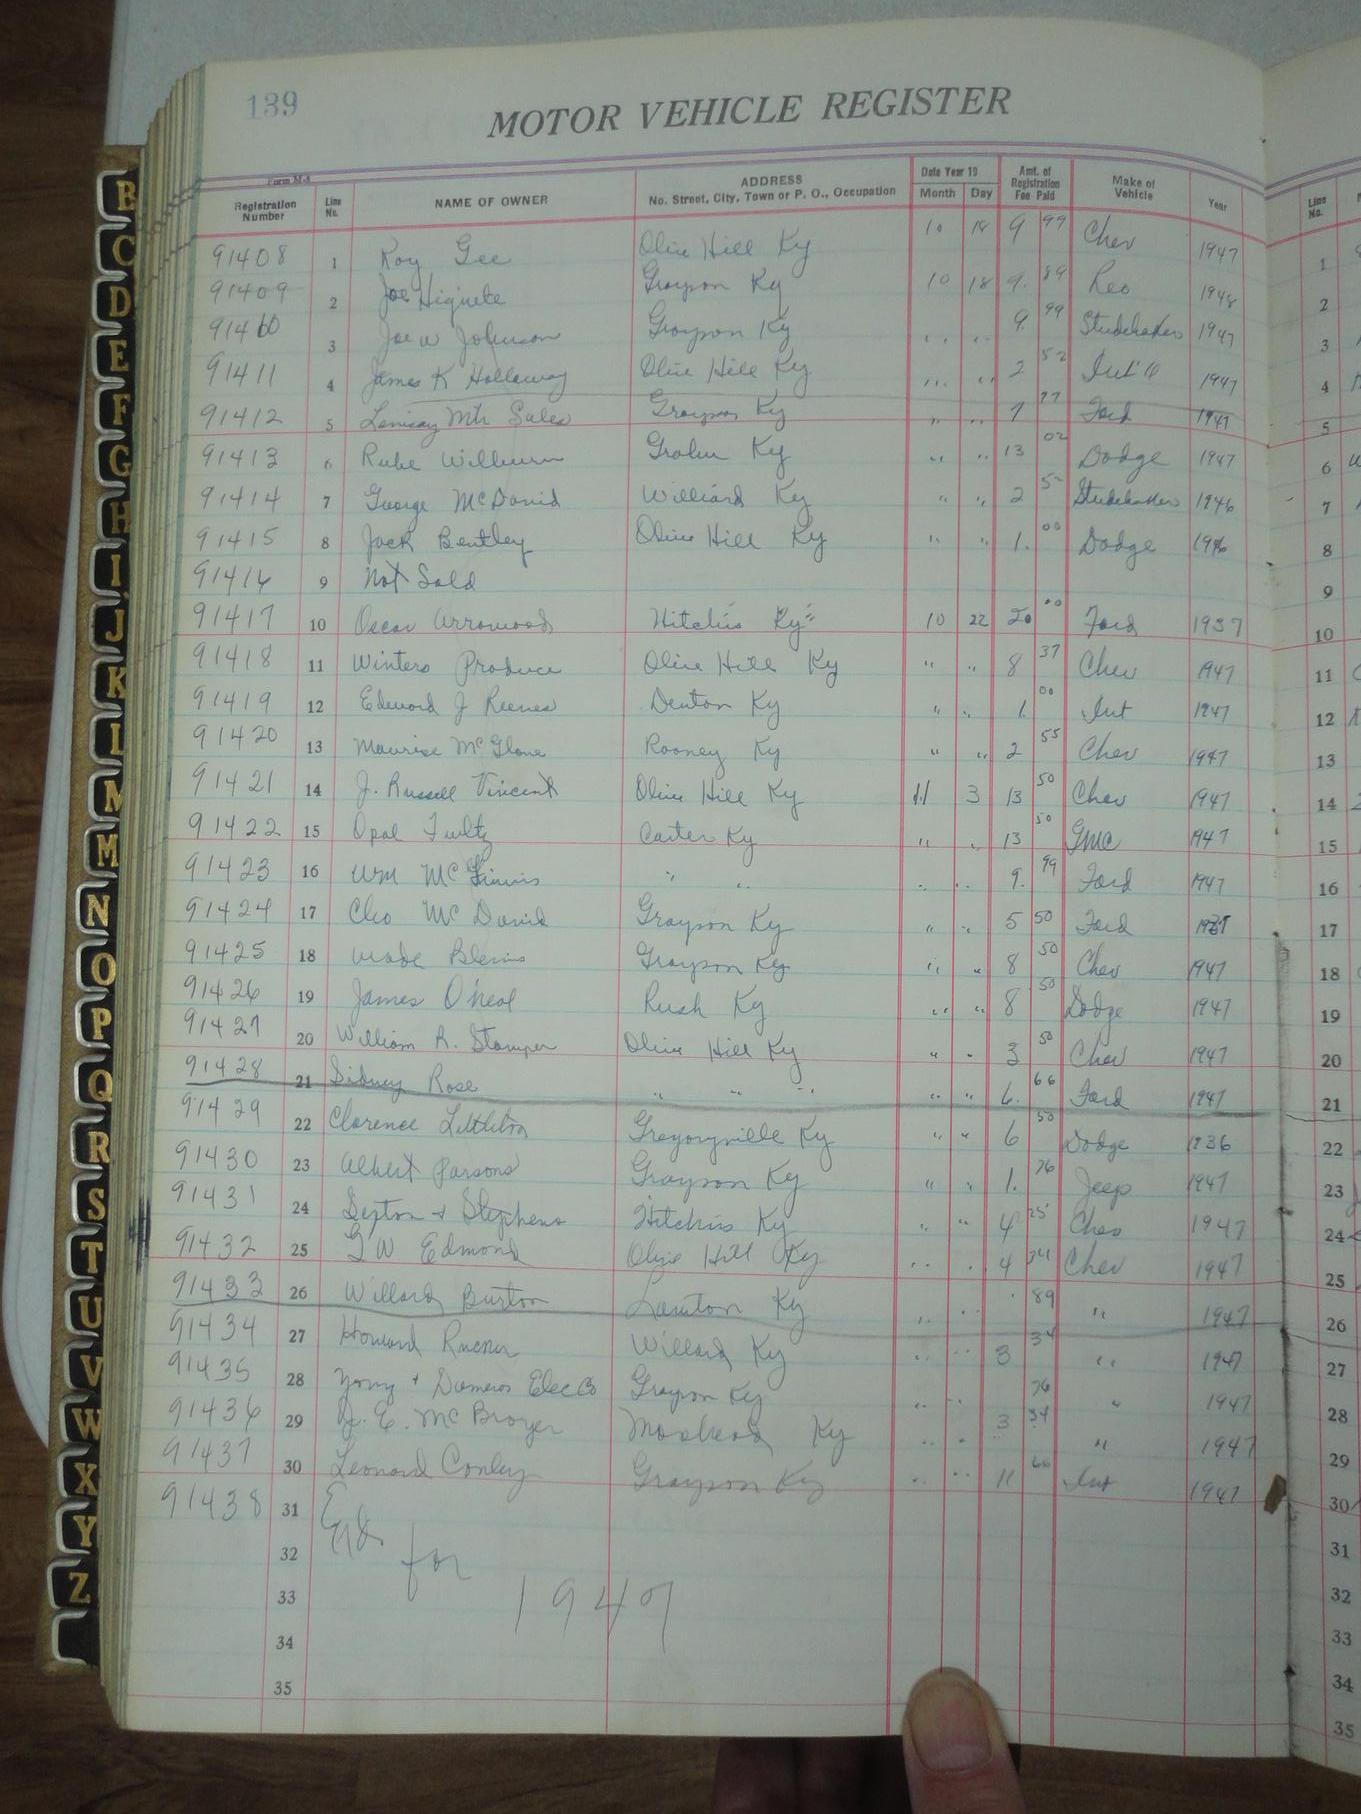 139
MOTOR VEHICLE REGISTER
Form M-4
Registration Number Line No. NAME OF OWNER ADDRESS No. Street, City, Town or P. O., Occupation Date Year 19 Month Day Amt. of Registration Fee Paid Make of Vehicle Year
91408 1 Roy Gee Olive Hill Ky 10 18 9 99 Chev 1947
91409 2 Joe Hignite Grayson Ky 10 18 9. 89 Reo 1948
91410 3 Joe W Johnson Grayson Ky " " 9. 99 Studebaker 1947
91411 4 James K Hollaway Olive Hill Ky " " 2 52 Int'l 1947
91412 5 Mtr Sales Grayson Ky " " 7 77 Ford 1947
91413 6 Rube Wilburn Grahn Ky " " 13 02 Dodge 1947
91414 7 George McDavid Williard Ky " " 2 Studebaker 1946
91415 8 Jack Bentley Olive Hill Ky " " 1. 00 Dodge 1946
91416 9 Not Sold
91417 10 Oscar Arrowood Hitchins Ky 10 22 00 Ford 1937
91418 11 Winters Produce Olive Hill Ky " " 8 37 Chev 1947
91419 12 Edward J Reeves Denton Ky " " 1. 00 Int 1947
91420 13 Maurise McGlone Rooney Ky " " 2 55 Chev 1947
91421 14 J. Russell Vincent Olive Hill Ky 11 3 13 50 Chev 1947
91422 15 Opal Fultz Carter Ky " " 13 50 GMC 1947
91423 16 Wm McGinnis " " " " 9. 99 Ford 1947
91424 17 Cleo McDavid Grayson Ky " " 5 50 Ford
91425 18 Wade Blevins Grayson Ky " " 8 50 Chev 1947
91426 19 James O'neal Rush Ky " " 8 50 Dodge 1947
91427 20 William R. Stamper Olive Hill Ky " " 3 50 Chev 1947
91428 21 Sidney Rose " " " " " 6. 66 Ford 1947
91429 22 Clarence Littleton Gregoryville Ky " " 6 50 Dodge 1936
91430 23 Albert Parsons Grayson Ky " " 1. 76 Jeep 1947
91431 24 Septon + Stephens Hitchins Ky " " 4 25 Chev 1947
91432 25 G W Edmond Olive Hill Ky " " 4 Chev 1947
91433 26 Willard Burton Lawton Ky " " 89 " 1947
91434 27 Howard Rucker Willard Ky " " 3 34 " 1947
91435 28 Young + Elec Co Grayson Ky " " 76 " 1947
91436 29 J. E. McBrayer Morehead Ky " " 3 34 " 1947
91437 30 Leonard Conley Grayson Ky " " 11 66 Int 1947
91438 31
32 End for
33 1947
34
35
Line No.
1
2
3
4
5
6
7
8
9
10
11
12
13
14
15
16
17
18
19
20
21
22
23
24
25
26
27
28
29
30
31
32
33
34
35
B
C
D
E
F
G
H
I
J
K
L
M
M
N
O
P
Q
R
S
T
U
V
W
X
Y
Z